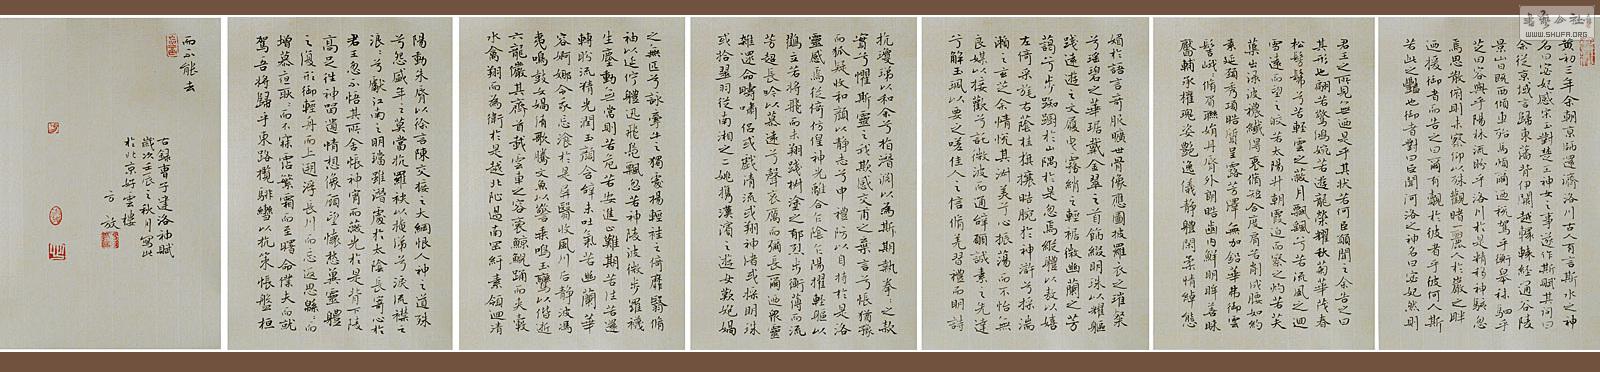 黄初三年余朝京師還濟洛川古人有言斯水之神
名曰宓妃感宋玉對楚王神女之事遂作斯賦其詞曰
余從京域言歸東藩背伊闕越轘轅經通谷陵
景山日既西傾車殆馬煩爾迺稅駕乎蘅皋秣駟乎
芝田容與乎陽林流眄乎洛川於是精移神駭忽
焉思散俯則未察仰以殊觀睹一麗人於巖之畔
迺援御者而告之曰爾有覿於彼者乎彼何人斯
若此之豔也御者對曰臣聞河洛之神名曰宓妃然則
君王之所見無迺是乎其狀若何臣願聞之余告之曰
其形也翩若驚鴻婉若遊龍榮耀秋菊華茂春
松髣髴兮若輕雲之蔽月飄颻兮若流風之迴
雪遠而望之皎若太陽升朝霞迫而察之灼若芙
蕖出渌波襛纖得衷脩短合度肩若削成腰如約
素延頸秀項皓質呈露芳澤無加鉛華弗御雲
髻峨峨脩眉聯娟丹脣外朗皓齒内鮮明眸善睞
靨輔承權瓌姿艷逸儀靜體閑柔情綽態
媚於語言奇服曠世骨像應圖披羅衣之璀粲
兮珥瑤碧之華琚戴金翠之首飾綴明珠以耀軀
踐遠遊之文履曳霧綃之輕裾微幽蘭之芳
藹兮步踟躕於山隅於是忽焉縱體以敖以嬉
左倚采旄右蔭桂旗攘皓腕於神滸兮采湍
瀨之玄芝余情悅其淑美兮心振蕩而不怡無
良媒以接歡兮託微波而通辭願誠素之先達
兮解玉珮以要之嗟佳人之信脩羌習禮而明詩
抗瓊珶以和余兮指潛淵以為期執拳拳之款
實兮懼斯靈之我欺感交甫之棄言兮悵猶豫
而狐疑收和顏以靜志兮申禮防以自持於是洛
靈感焉徙倚彷徨神光離合乍陰乍陽擢輕軀以
鶴立若將飛而未翔踐椒塗之郁烈步蘅薄而流
芳超長吟以慕遠兮聲哀厲而彌長爾迺衆靈
雜遝命疇嘯侶或戲清流或翔神渚或採明珠
或拾翠羽從南湘之二姚攜漢濱之遊女歎匏媧
之無匹兮詠牽牛之獨處揚輕袿之倚靡翳脩
袖以延佇體迅飛鳧飄忽若神陵波微步羅襪
生塵動無常則若危若安進止難期若往若還
轉眄流精光潤玉顏含辭未吐氣若幽蘭華
容婀娜令我忘飡於是屏翳收風川后靜波馮
夷鳴鼓女媧清歌騰文魚以警乘鳴玉鑾以偕逝
六龍儼其齊首載雲車之容裔鯨鯢踊而夾轂
水禽翔而為衛於是越北沚過南岡紆素領迴清
陽動朱脣以徐言陳交接之大綱恨人神之道殊
兮怨盛年之莫當抗羅袂以掩涕兮淚流襟之
浪浪兮獻江南之明璫雖潛處於太陰長寄心於
君王忽不悟其所舍悵神宵而蔽光於是背下陵
高足往神留遺情想像顧望懷愁冀靈體
之復形御輕舟而上遡浮長川而忘返思緜緜而
增慕夜耿耿而不寐霑繁霜而至曙命僕夫而就
駕吾將歸乎東路攬騑轡以抗策悵盤桓
而不能去
古錄曹子建洛神賦
歲次壬辰之秋月寫此
於北京好雲樓
方放
書藝公社
WWW.SHUFA.ORG